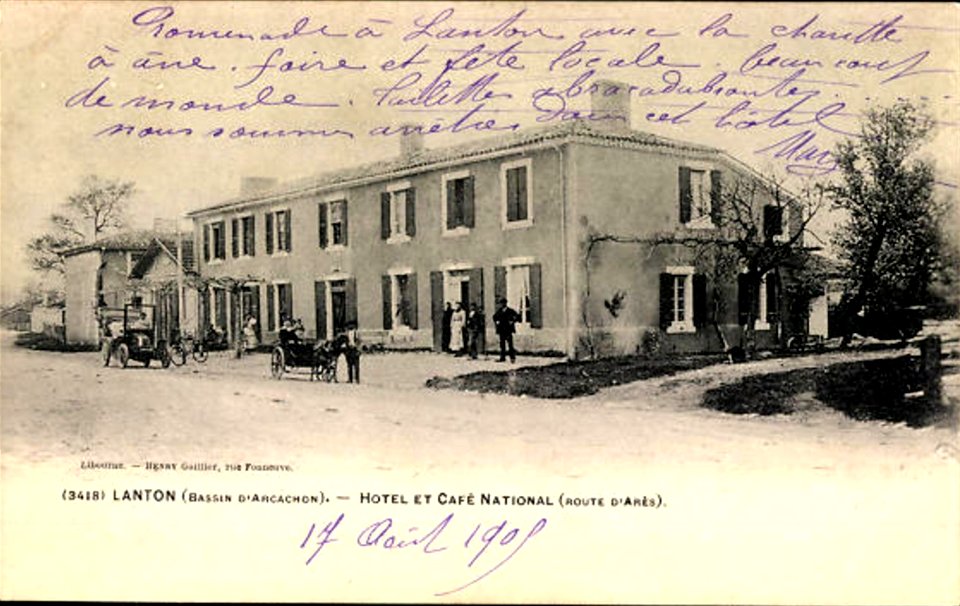 Promenade à Lanton avec la charette
à âne. foire et fête locale. beaucoup
de monde. toilettes abracadabrantes.
nous sommes arrêtés dans cet hôtel
Libourne. — HENRY Guillier, rue Fonneuve.
(3418) LANTON (BASSIN D'ARCACHON). — HOTEL ET CAFÉ NATIONAL (ROUTE D'ARÈS).
17 Août 1905